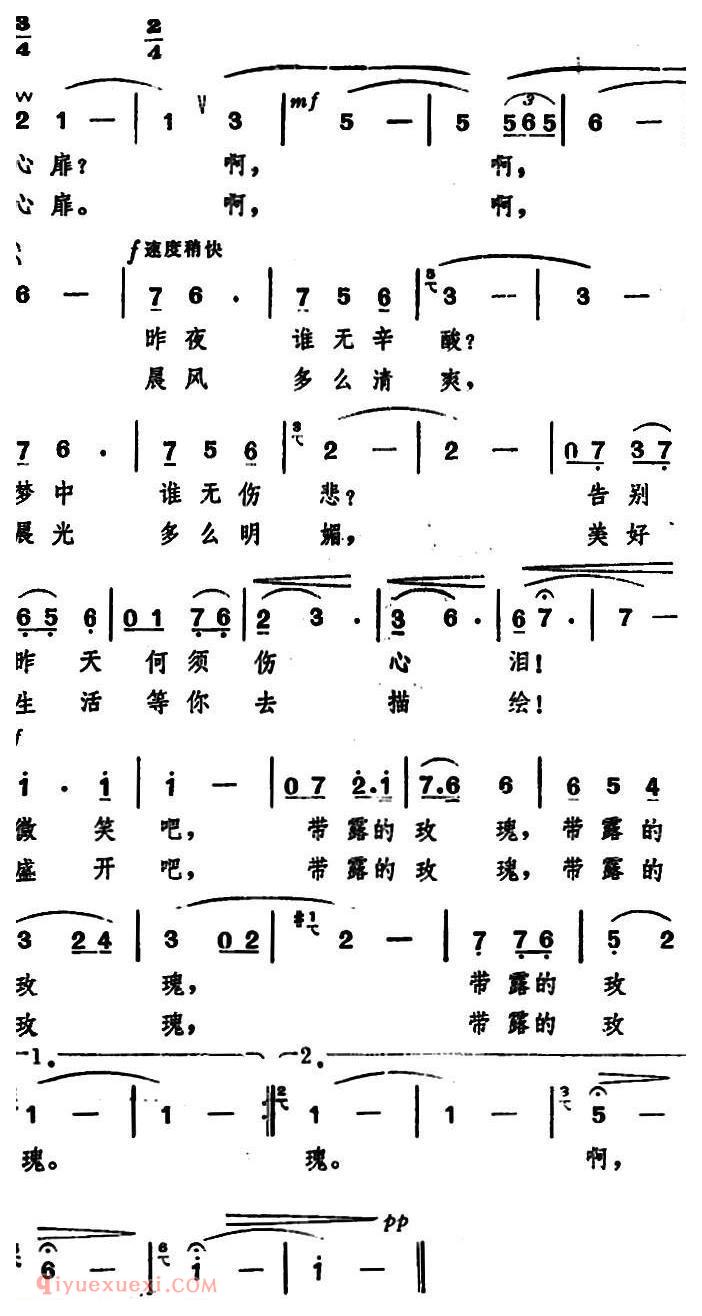 3/4 2/4
2 1 — | 1 ∨ 3 | mf 5 — | 5 3 565 | 6 —
心扉? 啊, 啊,
心扉。 啊, 啊,
f 速度稍快
6 — | 7 6 . | 7 5 6 | 3 3 — | 3 —
昨夜 谁无辛酸?
晨风 多么清爽,
7 6 . | 7 5 6 | 3 2 — | 2 — | 0 7 3 7
梦中 谁无伤悲? 告别
晨光 多么明媚, 美好
6 5 6 | 0 1 7 6 | 2 3 . | 3 6 . | 6 7 . | 7 —
昨天何须伤心泪!
生活等你去描绘!
f
1 . 1 | 1 — | 0 7 2.1 | 7.6 6 | 6 5 4
微笑吧, 带露的玫瑰, 带露的
盛开吧, 带露的玫瑰, 带露的
3 2 4 | 3 0 2 | #1 2 — | 7 7 6 | 5 2
玫瑰, 带露的玫
玫瑰, 带露的玫
1. 2.
1 — | 1 — :‖ 2 1 — | 1 — | 3 5 —
瑰。 瑰。 啊,
pp
6 — | 6 1 — | 1 — ‖
qiyuexuexi.com